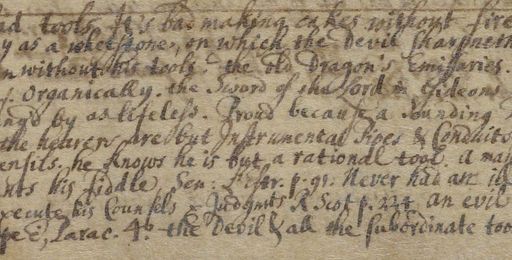 ad tools. It is bad making cakes without fire
y as a whetstone, on which the Devil sharpneth
n without his tools. the old Dragon's Emissaries.
s. Organically. the Sword of the Lord in Gideons
ings by as lifeless. Proud because a sounding
the hearers are but Instrumental Pipes & Conduits
ensils. he knows he is but a rational tool. a man
unts his fiddle, Sen: Epistr. p. 91. Never had an
execute his Counsels & Judgmts R Scot p. 224 an evil
Parac. 4. the Devil & all the subordinate too